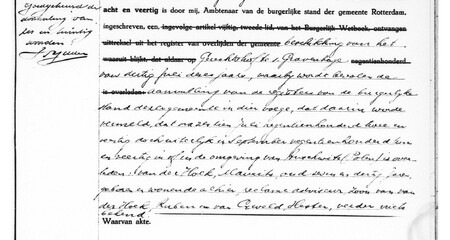 Goedgekeurd de
doorhaling van
zes en twintig
woorden!
acht en veertig is door mij, Ambtenaar van de burgerlijke stand der gemeente Rotterdam,
ingeschreven, een ingevolge artikel vijftig, tweede lid van het Burgerlijk Wetboek, ontvangen
uittreksel uit het register van overlijden der gemeente beschikking van het
waaruit blijkt, dat aldaar op Gerechtshof te 's Gravenhage negentienhonderd
van dertig juli dezes jaars, waarbij wordt bevolen de
is overleden: aanvulling van de registers van de burgerlijke
stand dezer gemeente in dier voege, dat daarin worde
vermeld, dat na zestien juli negentienhonderd twee en
veertig doch uiterlijk in september negentienhonderd
en veertig in of in de omgeving van Auschwitz (Polen) is over-
leden: van der Hoek, Maurits, oud zeven en dertig jaren,
geboren en wonende alhier, reclame adviseur, zoon van van
der Hoek, Ruben en van Hester, verder niets
bekend
Waarvan akte.